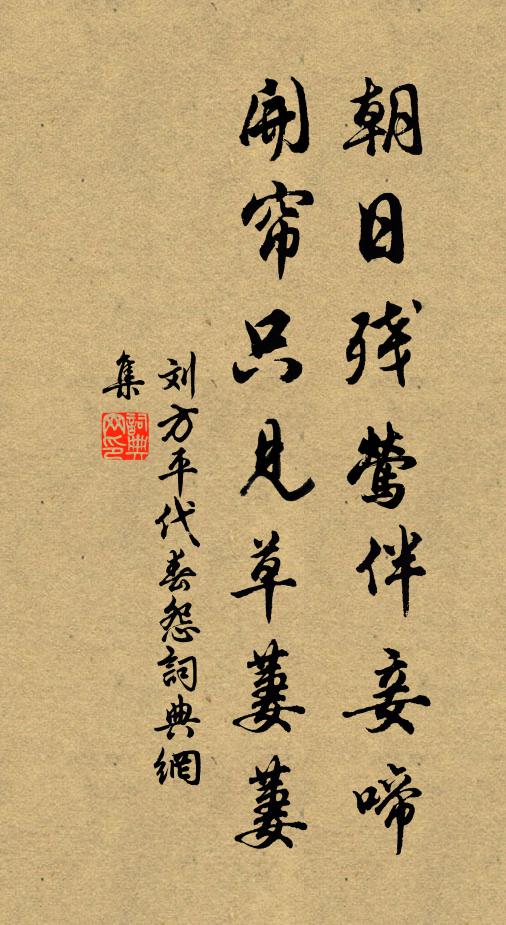 朝日残莺伴妾啼
開帘只見草萋萋
刘方平代春怨詞典網
集
詞典
网印